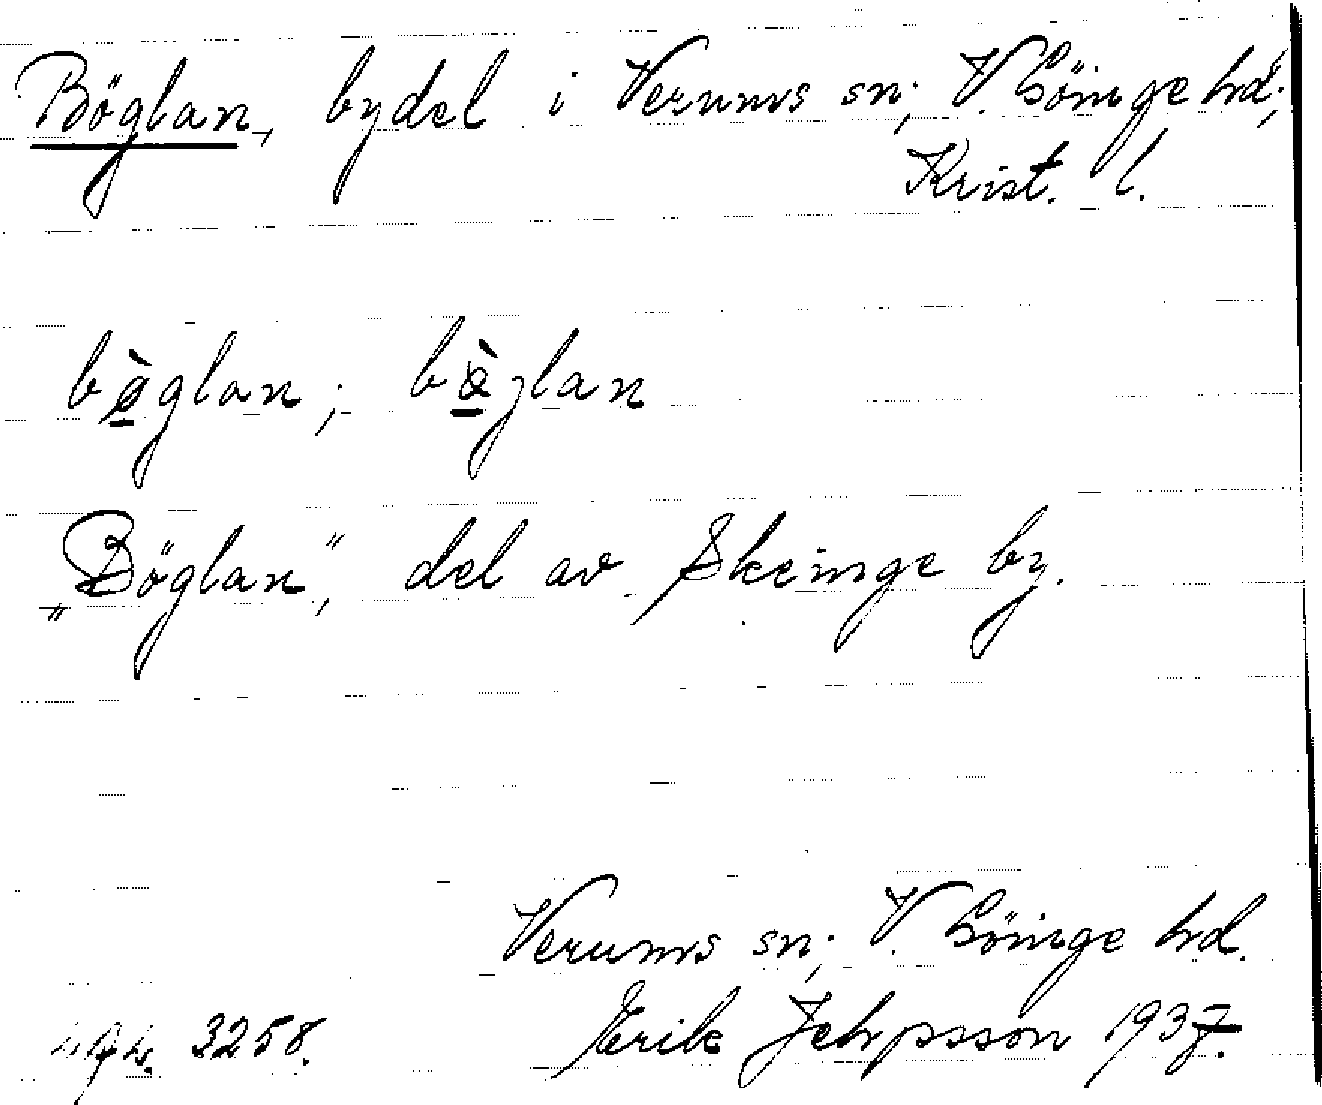 Böglan, bydel i Verums sn; V. Göinge hd;
Krist. l.
bø̀glan; bœ̀glan
„Böglan“, del av Skeinge by.
Verums sn; V. Göinge hd.
3258. Erik Jehpsson 1937.